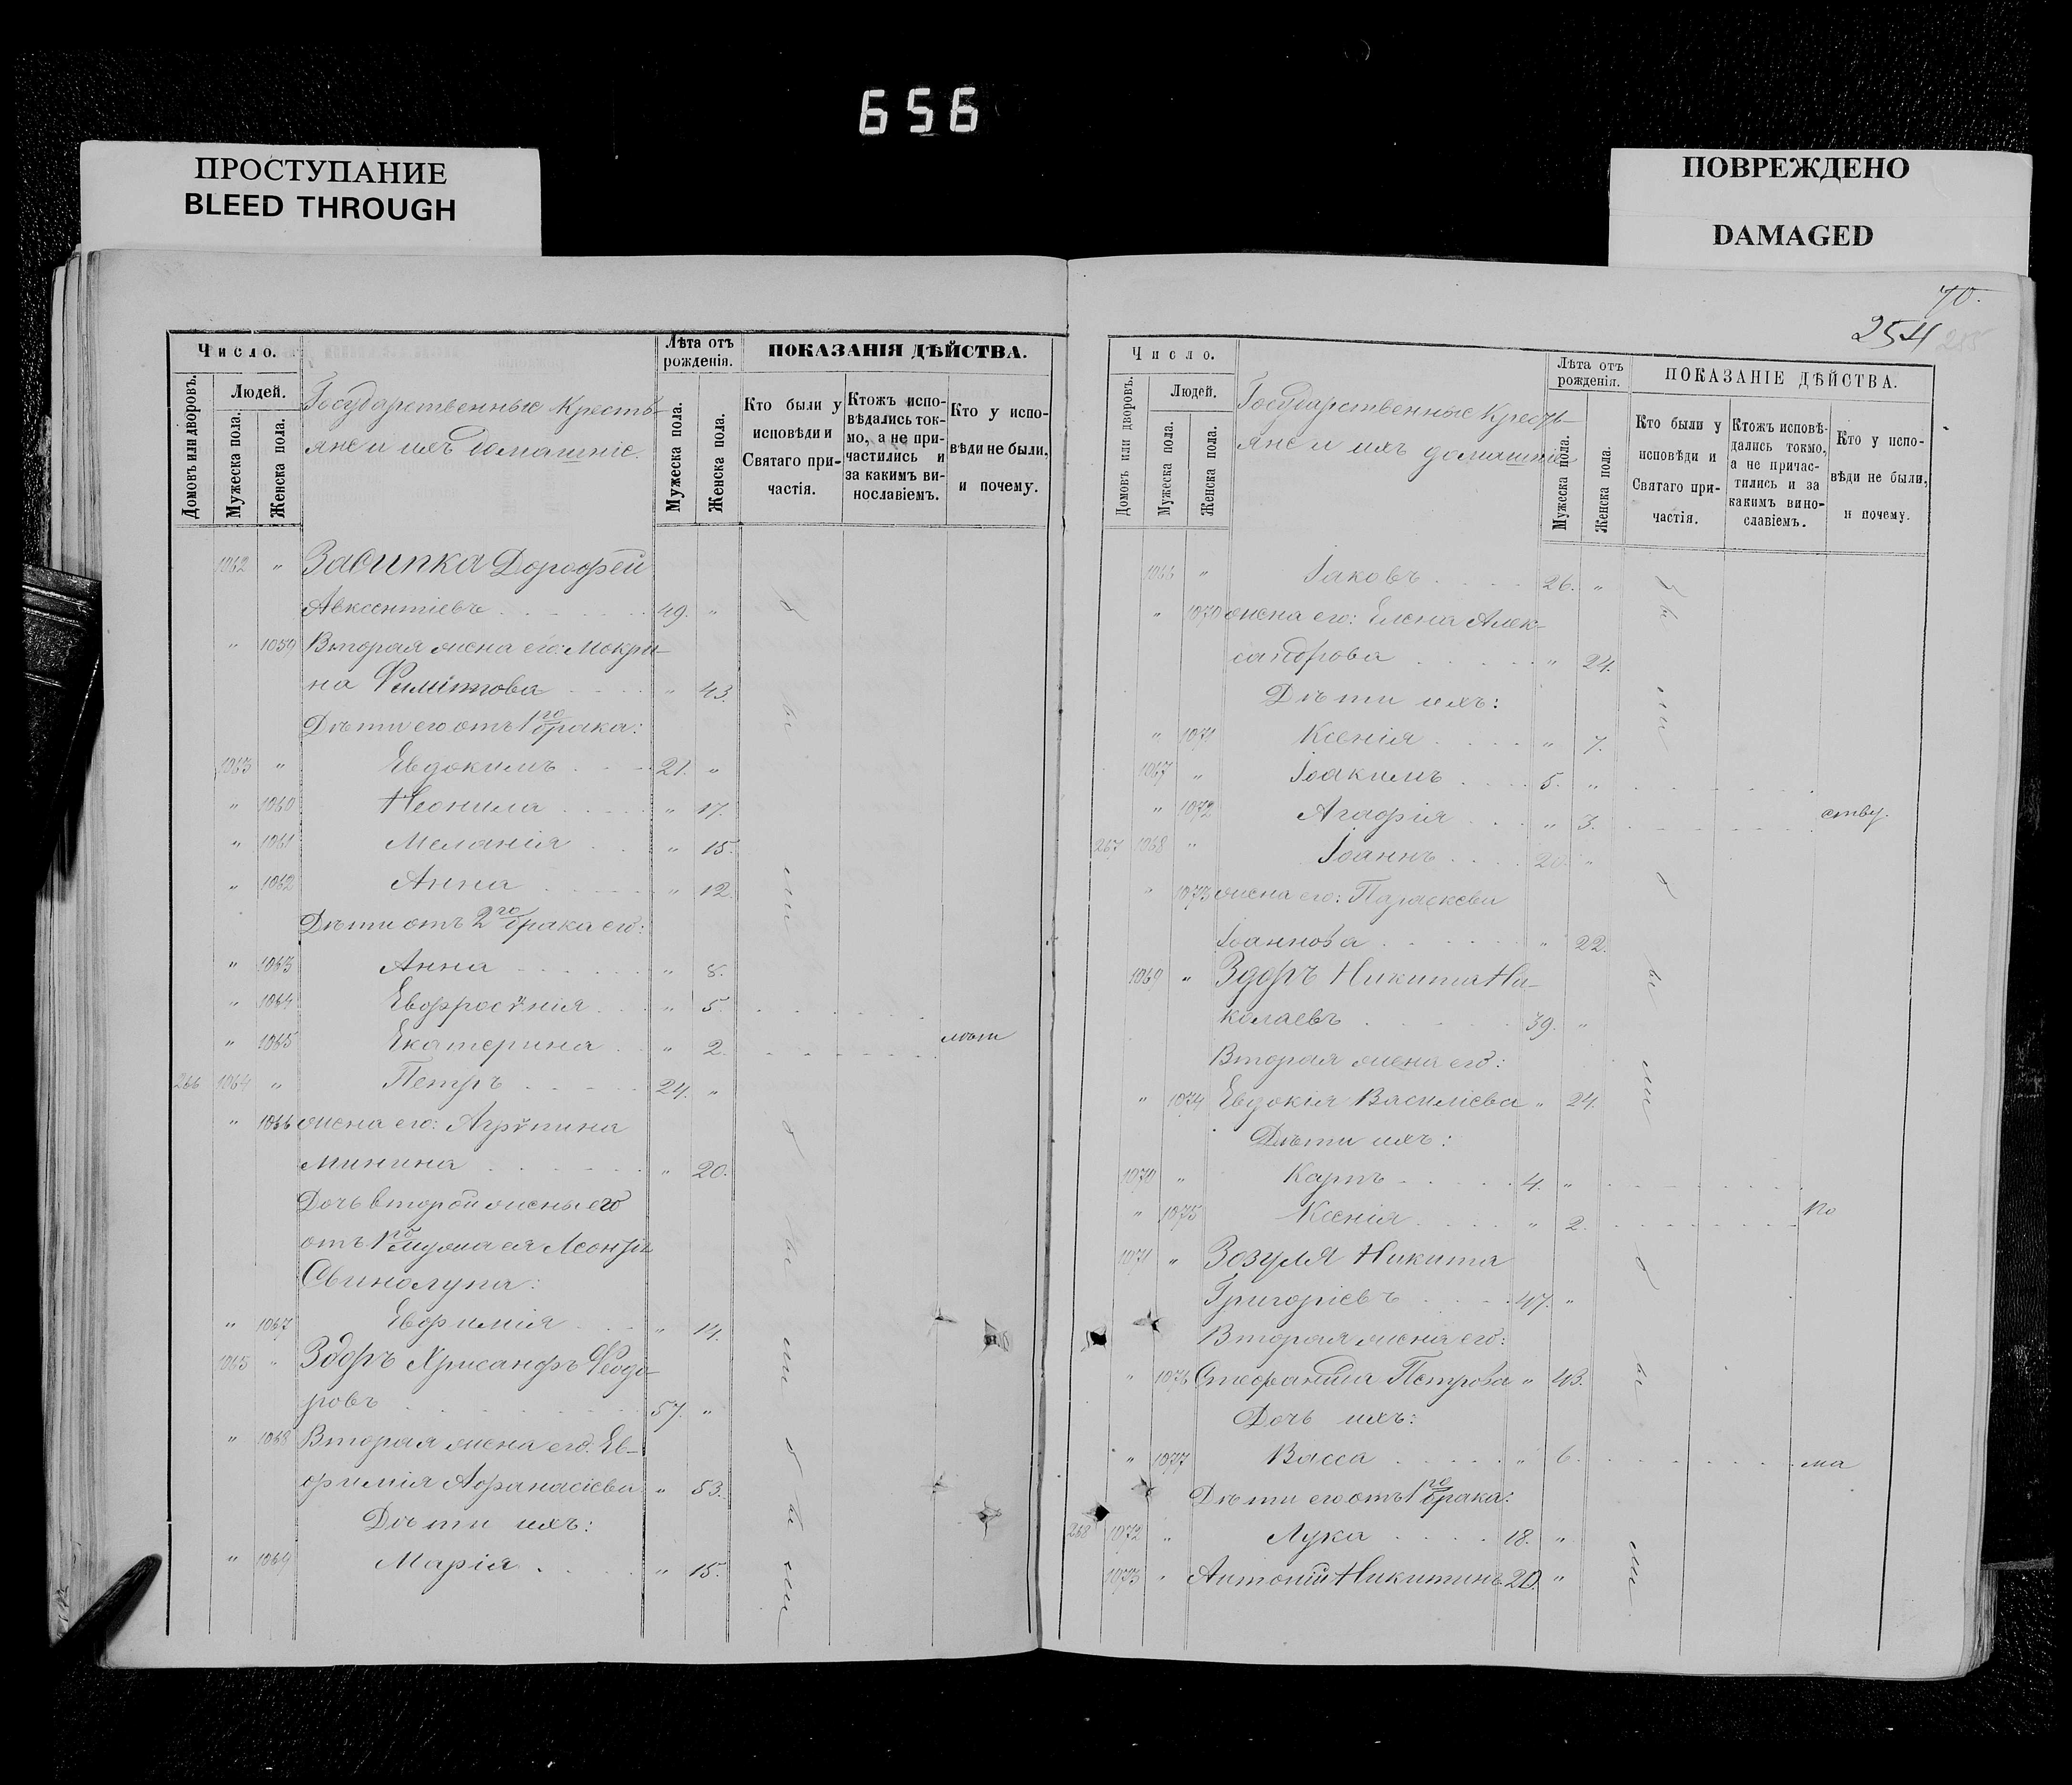 656
ПРОСТУПАНИЕ
BLEED THROUGH
ПОВРЕЖДЕНО
DAMAGED
70.
254 255
Число.
Людей.
Домовъ или дворовъ.
Мужеска пола.
Женска пола.
Государственные Кресть-
яне и ихъ домашніе.
Лѣта отъ рожденія.
Мужеска пола.
Женска пола.
ПОКАЗАНІЯ ДѢЙСТВА.
Кто были у исповѣди и Святаго при-частія.
Ктожъ испо-вѣдались ток-мо, а не при-частились и за какимъ ви-нославіемъ.
Кто у испо-вѣди не были, и почему.
1062 " Засипка Дороѳей
Авксентіевъ 49. "
" 1059 Вторая жена его: Мокри-
на 43.
Дѣти его отъ 1го брака:
1063 " Евдокимъ 21. "
" 1060 Неонила " 17.
" 1061 Меланія " 15.
" 1062 Анна " 12.
Дѣти отъ 2го брака его:
" 1063 Анна " 8.
" 1064 Евфросѵнія " 5.
" 1065 Екатерина " 2. лѣт
266 1064 " Петръ 24. "
" 1066 жена его: Агрѵпина
Минина " 20.
Дочь второй жены его
отъ 1го мужа ея Леонтія
Свинолупа:
" 1067 Евфимія " 14.
1065 " Здоръ Хрисанфъ Ѳеодо-
ровъ 57. "
" 1068 Вторая жена его: Ев-
фимія Афанасіева " 53.
Дѣти ихъ:
" 1069 Марія " 15.
были
Число.
Людей.
Домовъ или дворовъ.
Мужеска пола.
Женска пола.
Государственные Кресть-
яне и ихъ домашніе
Лѣта отъ рожденія.
Мужеска пола.
Женска пола.
ПОКАЗАНІЕ ДѢЙСТВА.
Кто были у исповѣди и Святаго при-частія.
Ктожъ исповѣ-дались токмо, а не причас-тились и за какимъ вино-славіемъ.
Кто у испо-вѣди не были, и почему.
1066 " Іаковъ 26. "
" 1070 жена его: Елена Алек-
сандрова " 24.
Дѣти ихъ:
" 1071 Ксенія " 7.
1067 " Іоакимъ 5. "
" 1072 Агафія " 3. ству.
267 1068 " Іоаннъ 20. "
" 1073 жена его: Параскева
Іоаннова " 22.
1069 " Здоръ Никита Ни-
колаевъ 39. "
Вторая жена его:
" 1074 Евдокія Василіева " 24.
Дѣти ихъ:
1070 " Карпъ 4. "
" 1075 Ксенія " 2. по
1071 " Зозуля Никита
Григоріевъ 47. "
Вторая жена его:
" 1076 Стефанида Петрова " 43.
Дочь ихъ:
" 1077 Васса " 6. ма
Дѣти его отъ 1го брака:
268 1072 " Лука 18. "
1073 " Антоній Никитинъ 20. "
были